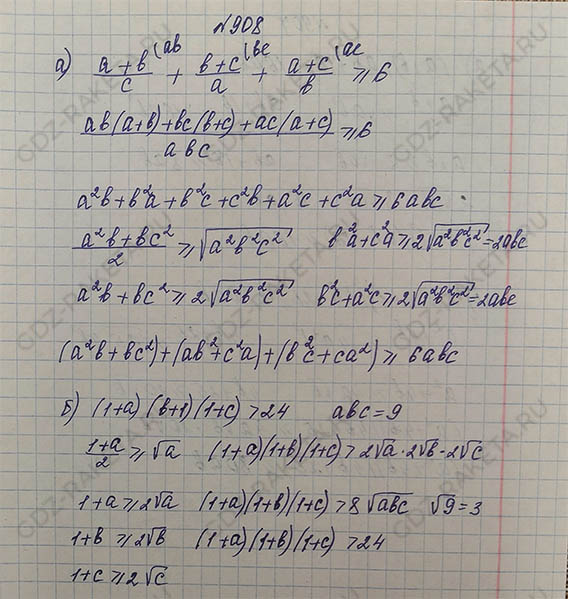 №908
а) (a+b)/c (ab + (b+c)/a (bc + (a+c)/b (ac ⩾ 6
(ab(a+b)+bc(b+c)+ac(a+c))/abc ⩾ 6
a²b+b²a+b²c+c²b+a²c+c²a ⩾ 6abc
(a²b+bc²)/2 ⩾ √(a²b²c²) b²a+c²a ⩾ 2√(a²b²c²) = 2abc
a²b+bc² ⩾ 2√(a²b²c²) b²c+a²c ⩾ 2√(a²b²c²) = 2abc
(a²b+bc²)+(ab²+c²a)+(b²c+ca²) ⩾ 6abc
б) (1+a)(b+1)(1+c) > 24 abc = 9
(1+a)/2 ⩾ √a (1+a)(1+b)(1+c) > 2√a · 2√b · 2√c
1+a ⩾ 2√a (1+a)(1+b)(1+c) > 8√abc √9 = 3
1+b ⩾ 2√b (1+a)(1+b)(1+c) > 24
1+c ⩾ 2√c
GDZ-RAKETA.RU